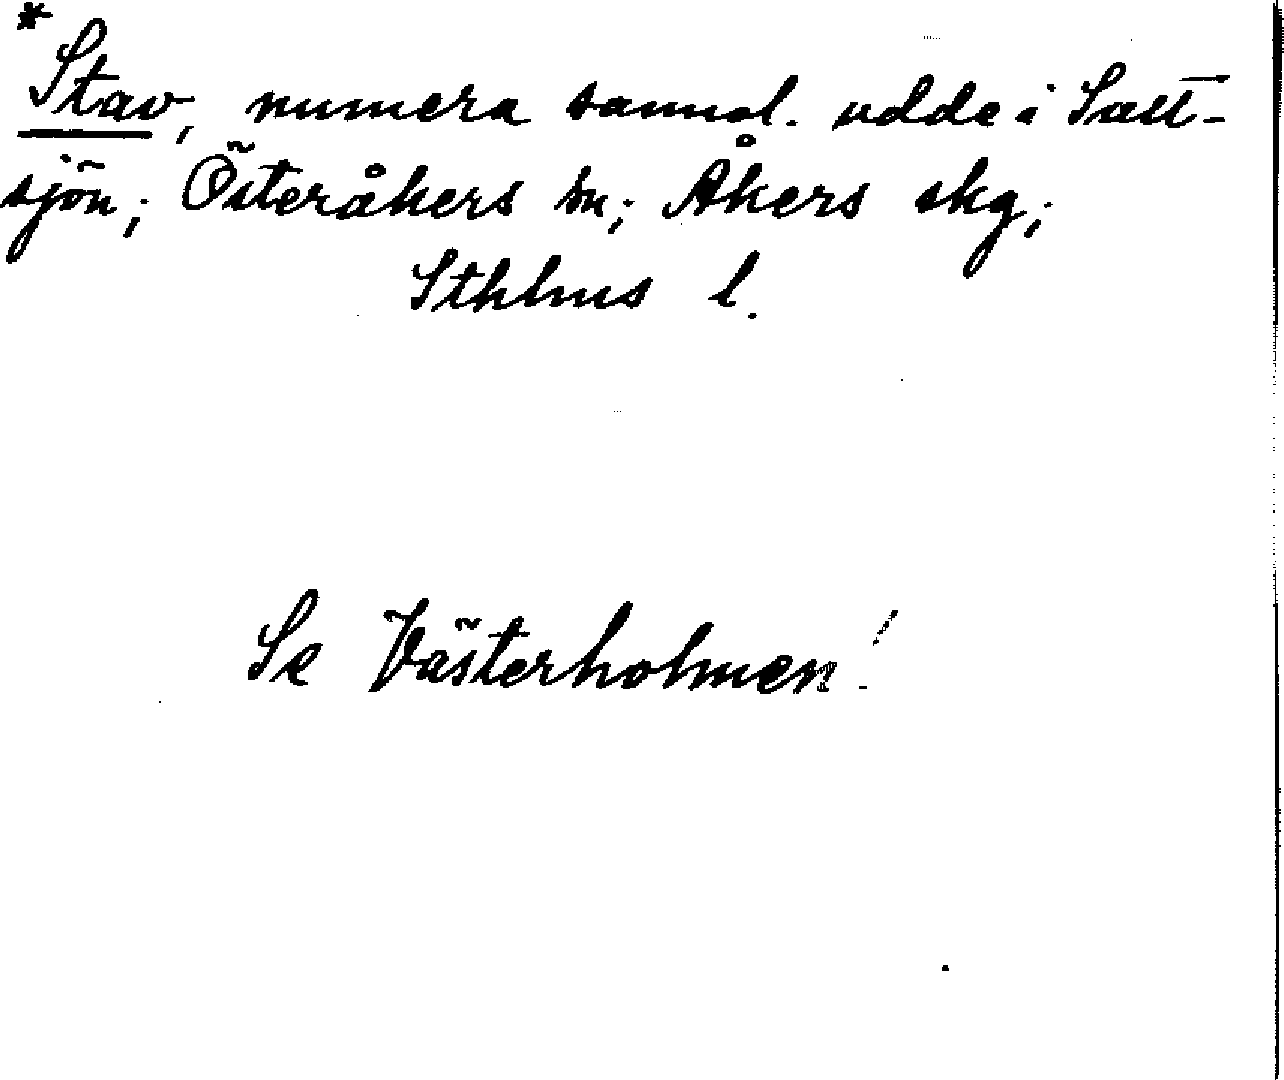 *Stav, numera sannol. udde i Salt-
sjön; Österåkers sn; Åkers skg;
Sthlms l.
Se Västerholmen!